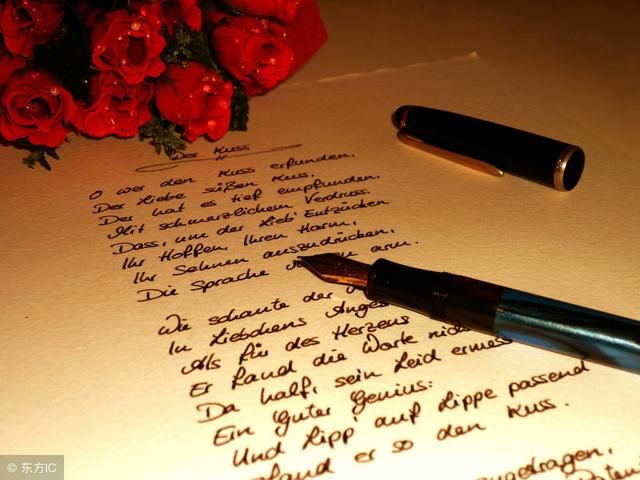 Der Kuss
O wer den Kuss erfunden,
Der Liebe süßen Kuss,
Der hat es tief empfunden,
Mit schmerzlichem Verdruss.
Dass, um der Lieb' Entzücken
Ihr Hoffen, Ihren Harm,
Ihr Sehnen auszudrücken,
Die Sprache arm.
Wie schaute der
In Liebchens
Als für des Herzens
Er fand die Worte
Da half, sein Leid
Ein guter Genius:
Und Lipp' auf Lippe passend
er so den Kuss.
© 东方IC